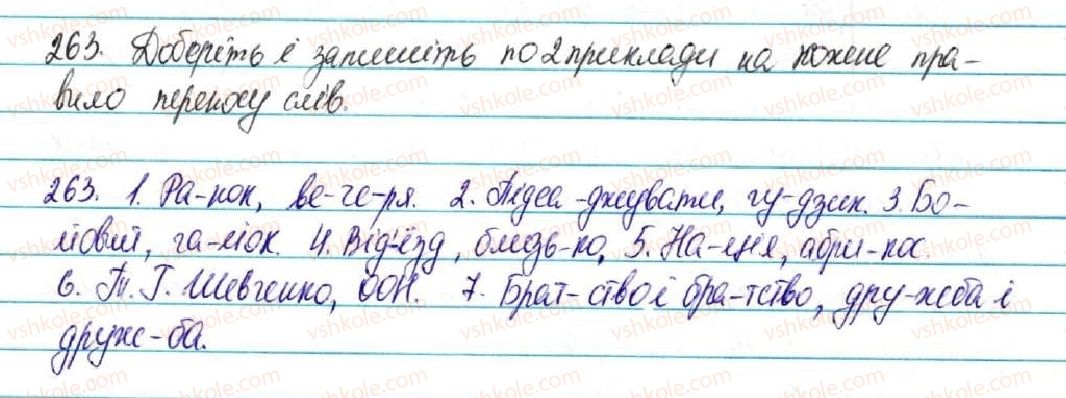 263. Доберіть і запишіть по 2 приклади на кожне пра-
вило переносу слів.
263. 1. Ра-нок, ве-че-ря. 2. Підса-джувати, гу-дзик. 3. Бо-
йовий, га-йок. 4. Від'їзд, близь-ко, 5. На-ція, абри-кос.
6. Т. Г. Шевченко, ООН. 7. Брат-ство і бра-тство, дру-жба і
друж-ба.